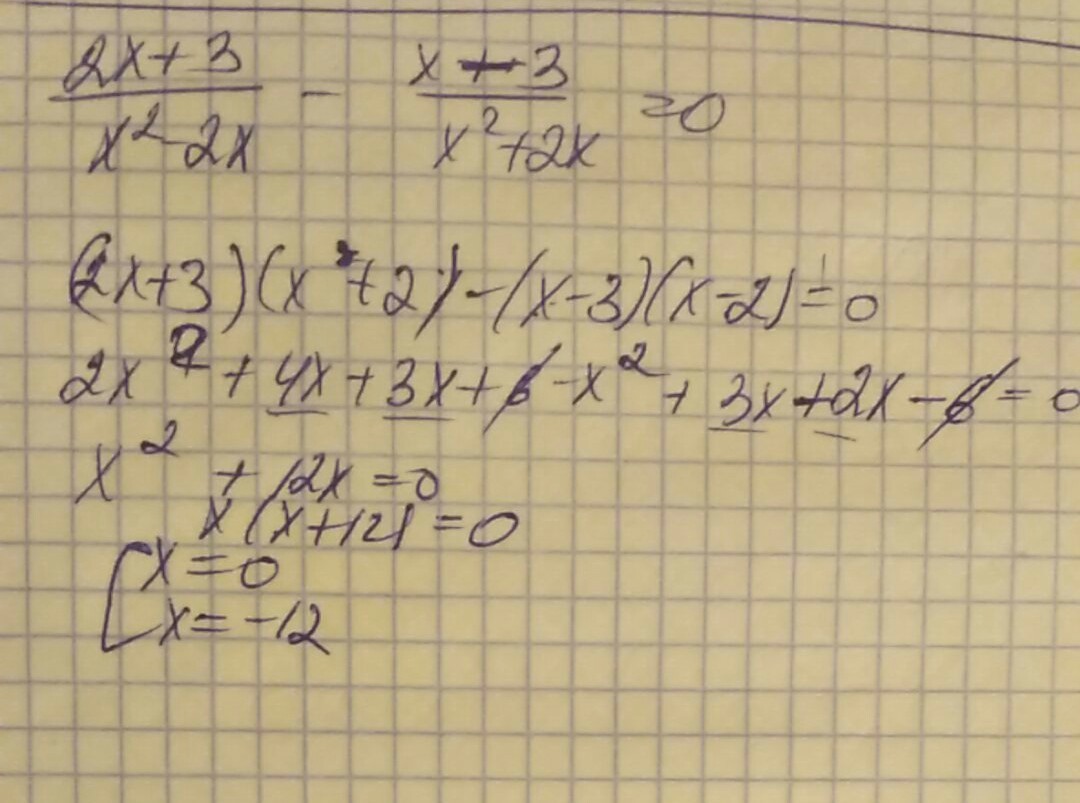 (2x+3)/(x²-2x) - (x-3)/(x²+2x) =0
(2x+3)(x²+2)-(x-3)(x-2)=0
2x²+4x+3x+6-x²+3x+2x-6=0
x²+12x=0
x(x+12)=0
[x=0
x=-12